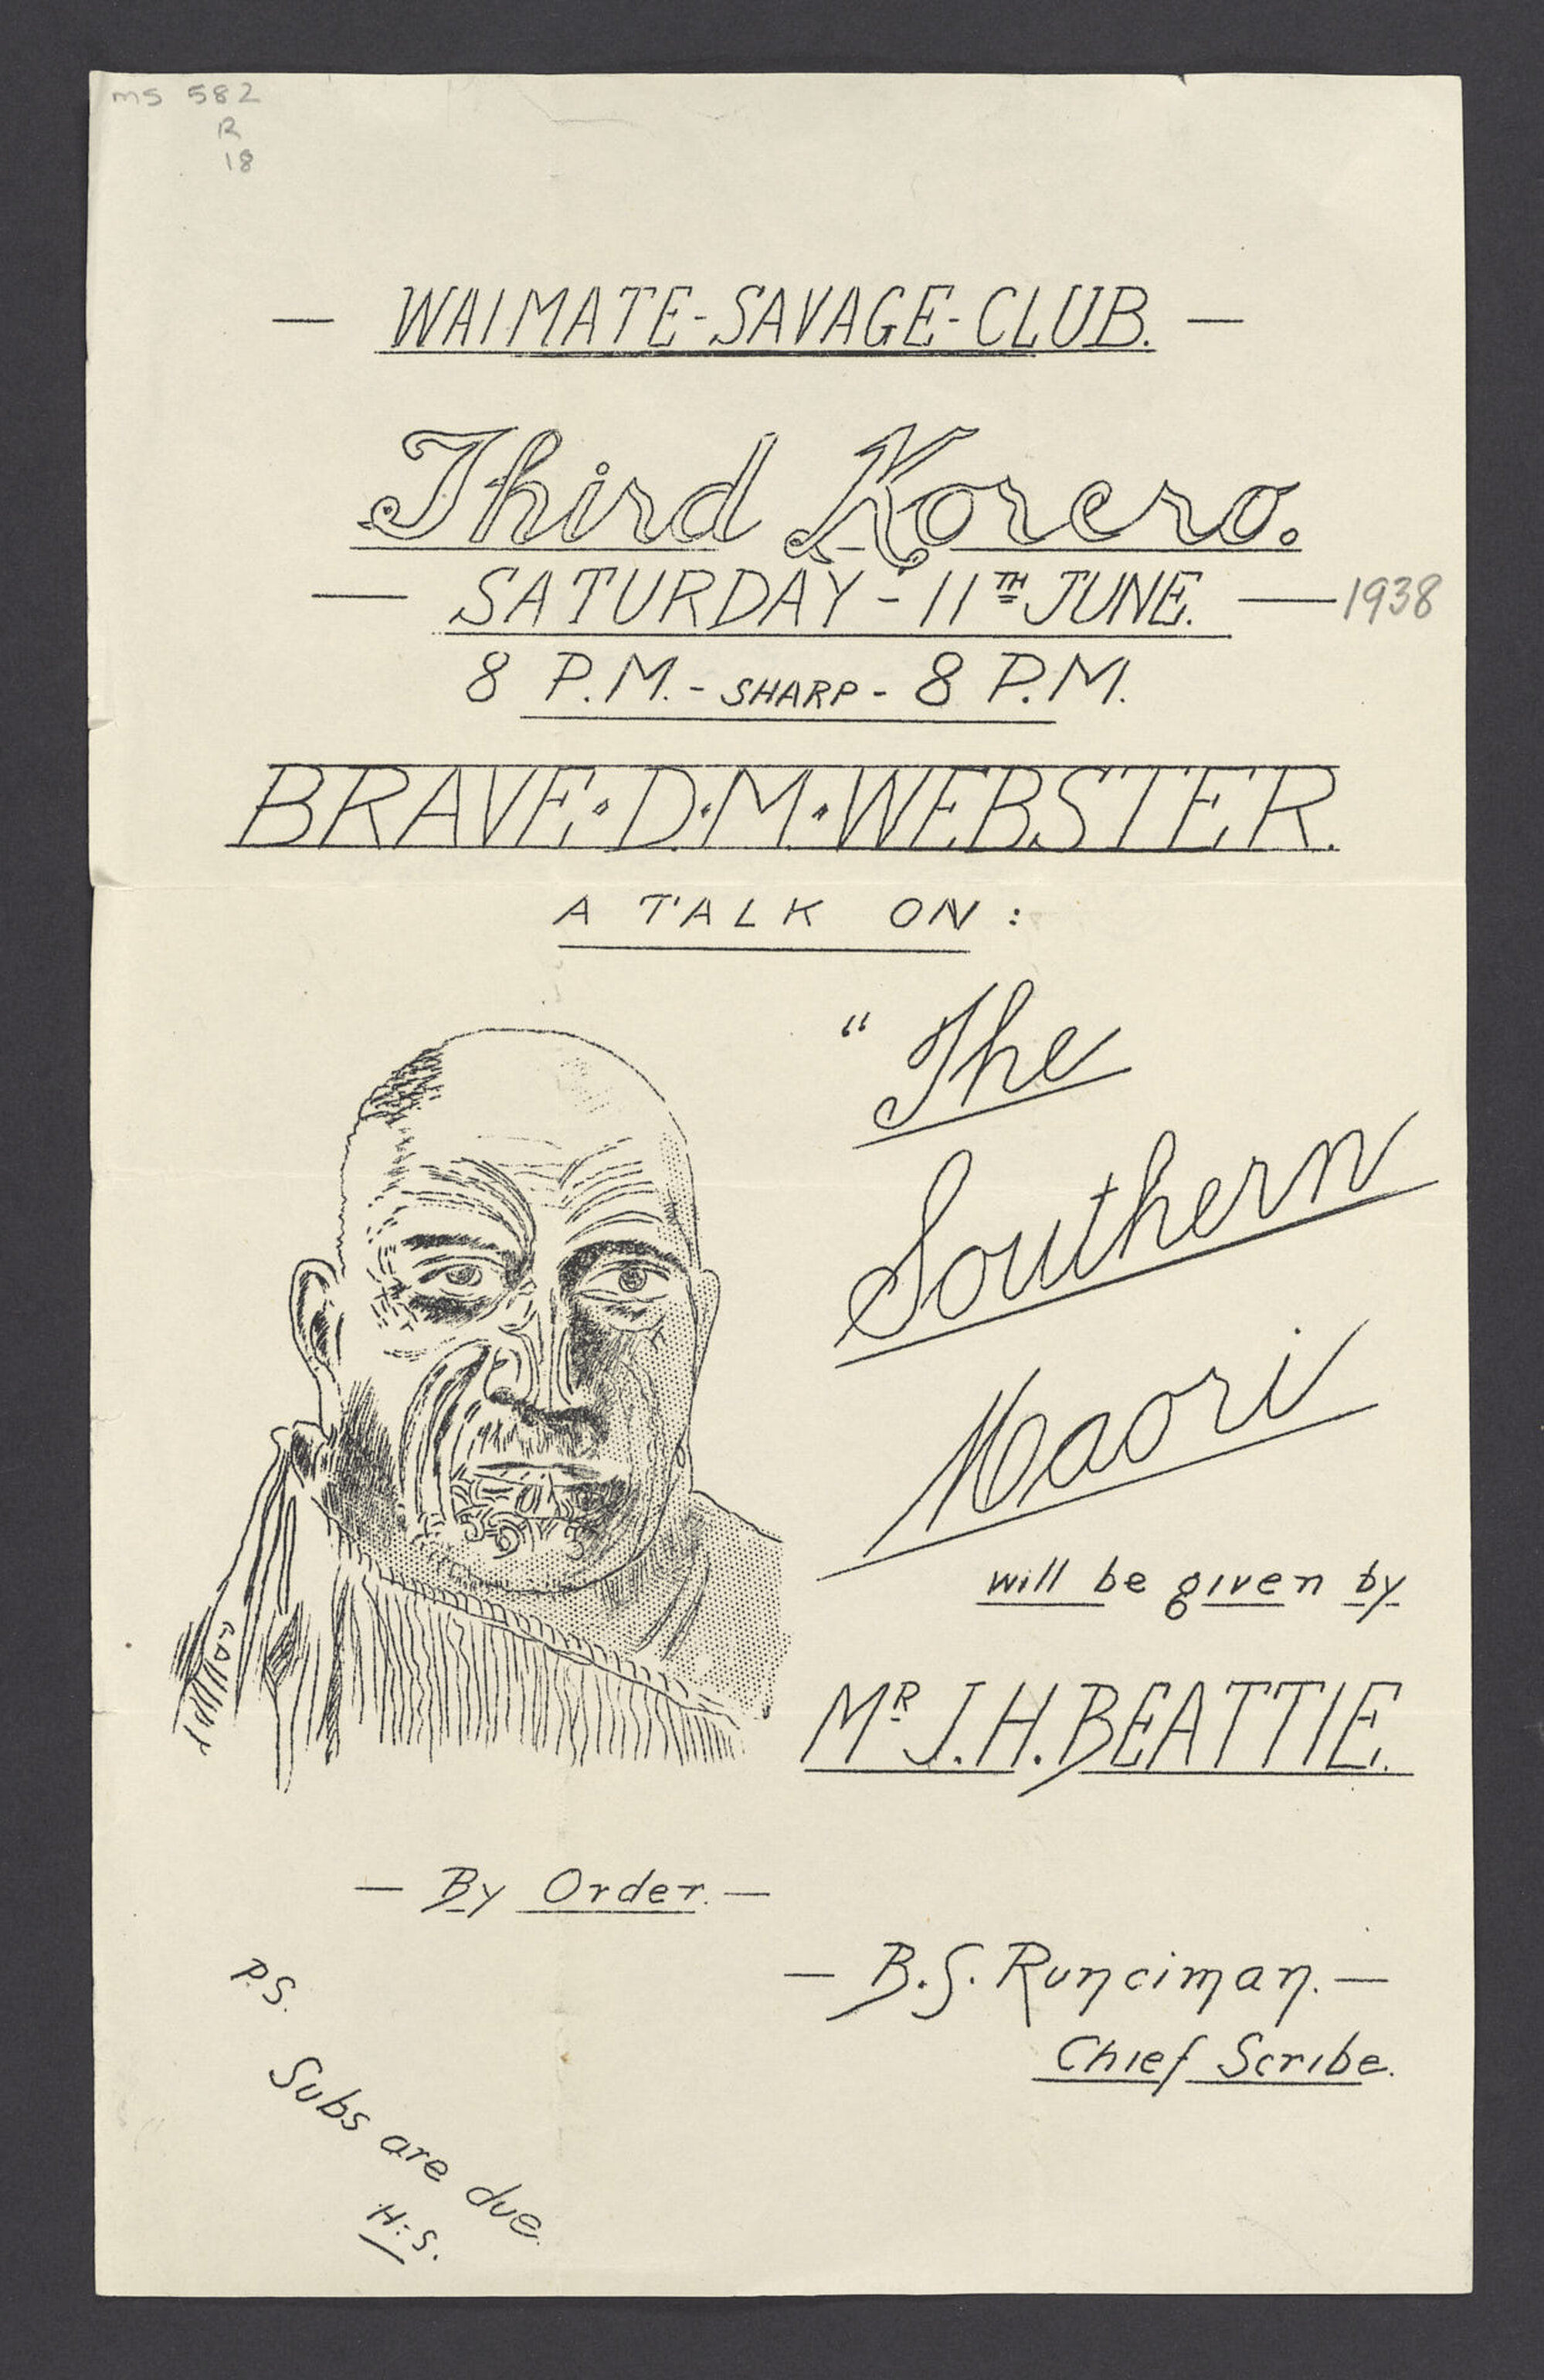 ms 582
R
18
— WAIMATE-SAVAGE-CLUB. —
Third Korero.
— SATURDAY - 11TH JUNE. — 1938
8 P.M. - SHARP - 8 P.M.
BRAVE·D·M·WEBSTER.
A TALK ON :
“ The
Southern
Maori
will be given by
MR J.H. BEATTIE.
— By Order. —
— B.S. Runciman. —
Chief Scribe.
P.S.
Subs are due.
H:S.